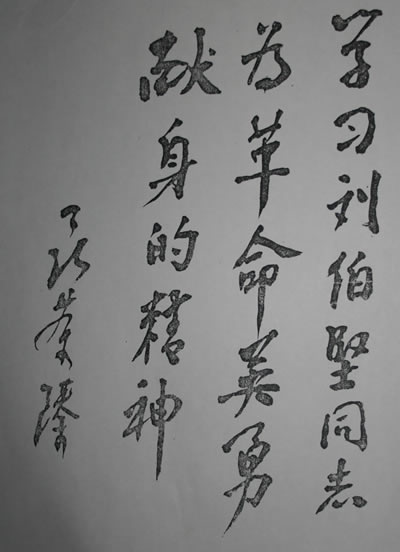 学习刘伯坚同志
为革命英勇
献身的精神
聂荣臻